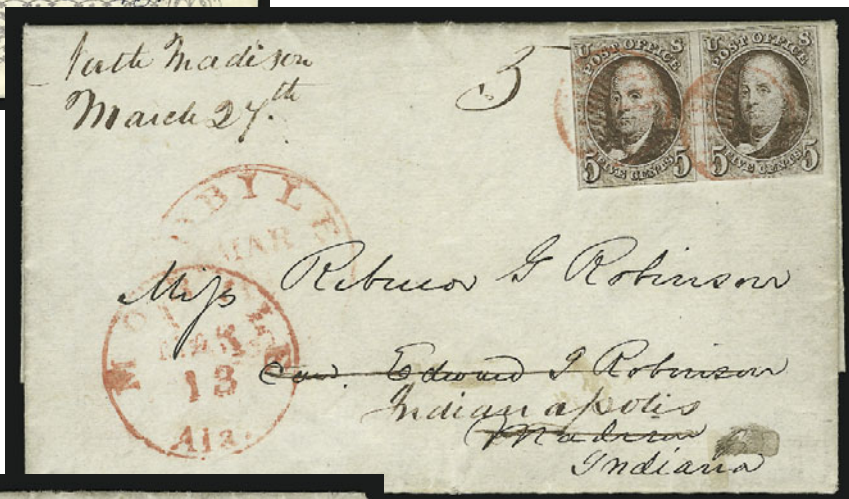 North Madison
March 27.th
5
U S
POST OFFICE
5 FIVE CENTS 5
U S
POST OFFICE
5 FIVE CENTS 5
MOBILE
MAR
MOBILE
MAR
13
Ala.
Miss Rebecca G Robinson
Care. Edward I Robinson
Indianapolis
Madison
Indiana